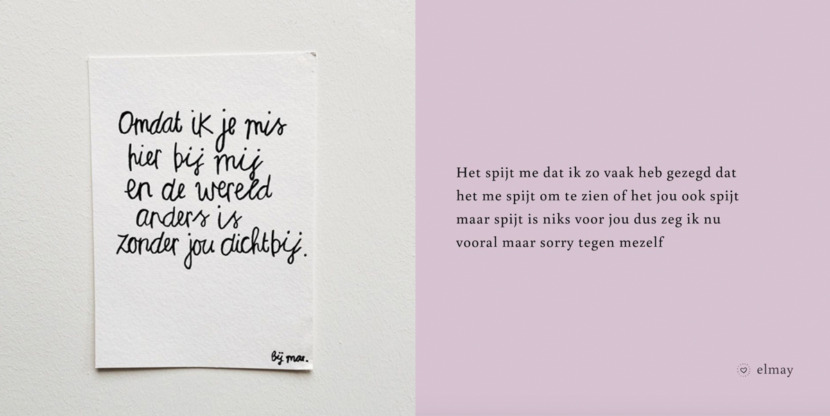 Omdat ik je mis
hier bij mij
en de wereld
anders is
zonder jou dichtbij.
bij mar.
Het spijt me dat ik zo vaak heb gezegd dat
het me spijt om te zien of het jou ook spijt
maar spijt is niks voor jou dus zeg ik nu
vooral maar sorry tegen mezelf
elmay